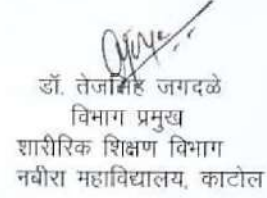 डॉ. तेजसिंह जगदळे
विभाग प्रमुख
शारीरिक शिक्षण विभाग
नबीरा महाविद्यालय, काटोल